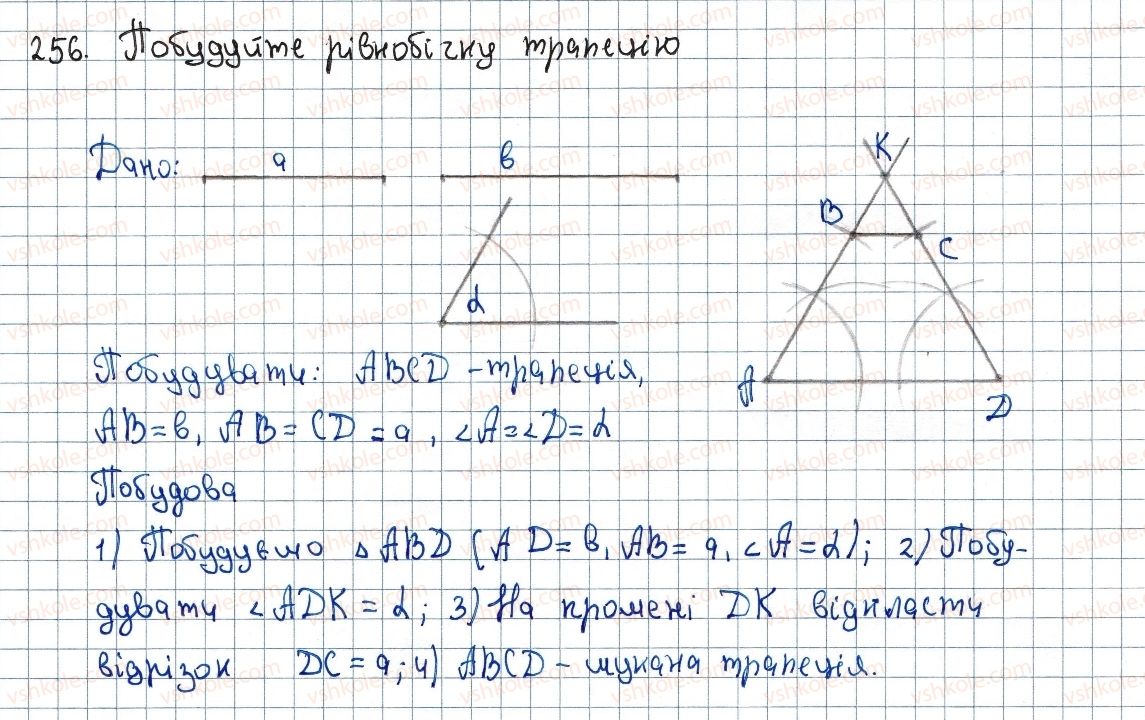 256. Побудуйте рівнобічну трапецію
Дано: a b
α
K
B
C
A
D
Побудувати: ABCD - трапеція,
AB = b, AB = CD = a, ∠A = ∠D = α
Побудова
1) Побудуємо △ ABD (AD = b, AB = a, ∠A = α); 2) Побу-
дувати ∠ADK = α; 3) На промені DK відкласти
відрізок DC = a; 4) ABCD - шукана трапеція.